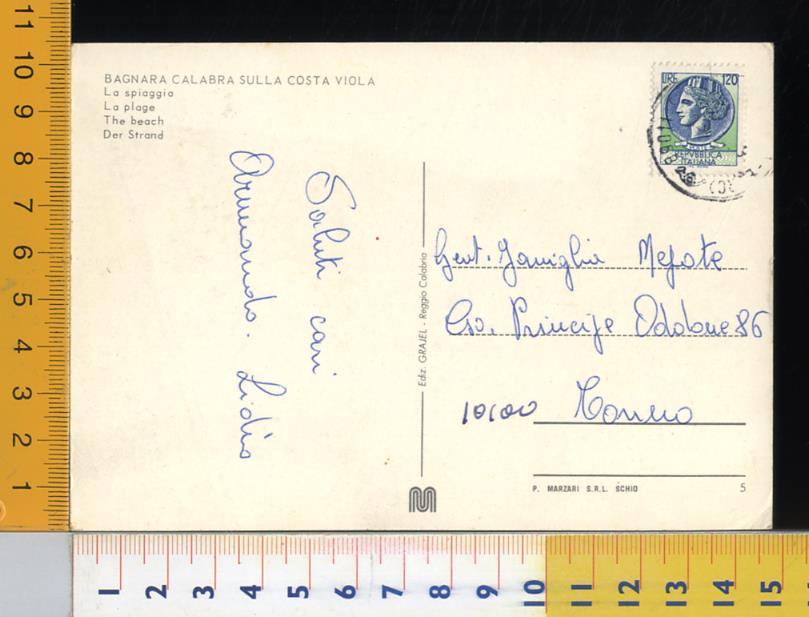 BAGNARA CALABRA SULLA COSTA VIOLA
La spiaggia
La plage
The beach
Der Strand
Saluti cari
Armando. Lidia
LIRE 120
REPVBBLICA
ITALIANA
Gent. Famiglia
Cso. Principe Oddone 86
10100 Torino
Ediz. GRAJEL - Reggio Calabria
P. MARZARI S.R.L. SCHIO 5
11
10
9
8
7
6
5
4
3
2
1
1 2 3 4 5 6 7 8 9 10 11 12 13 14 15